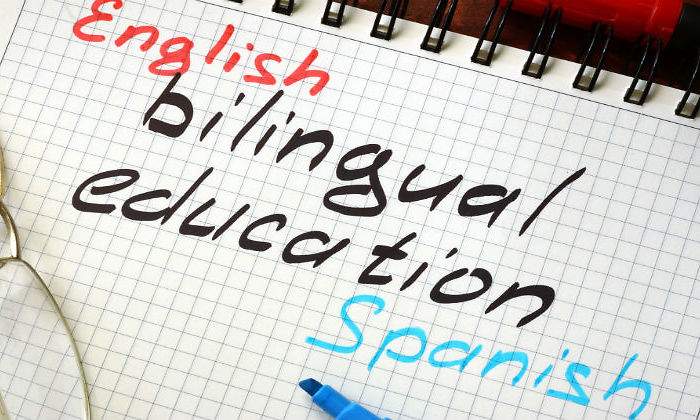 English
bilingual
education
Spanish